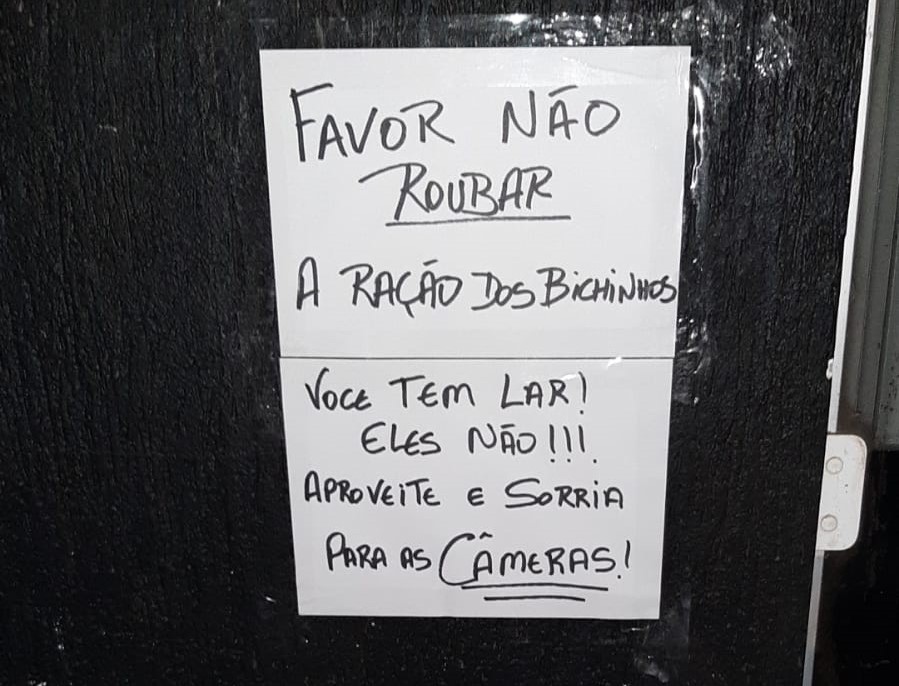 FAVOR NÃO
ROUBAR
A RAÇÃO DOS BICHINHOS
VOCE TEM LAR!
ELES NÃO!!!
APROVEITE E SORRIA
PARA AS CÂMERAS!